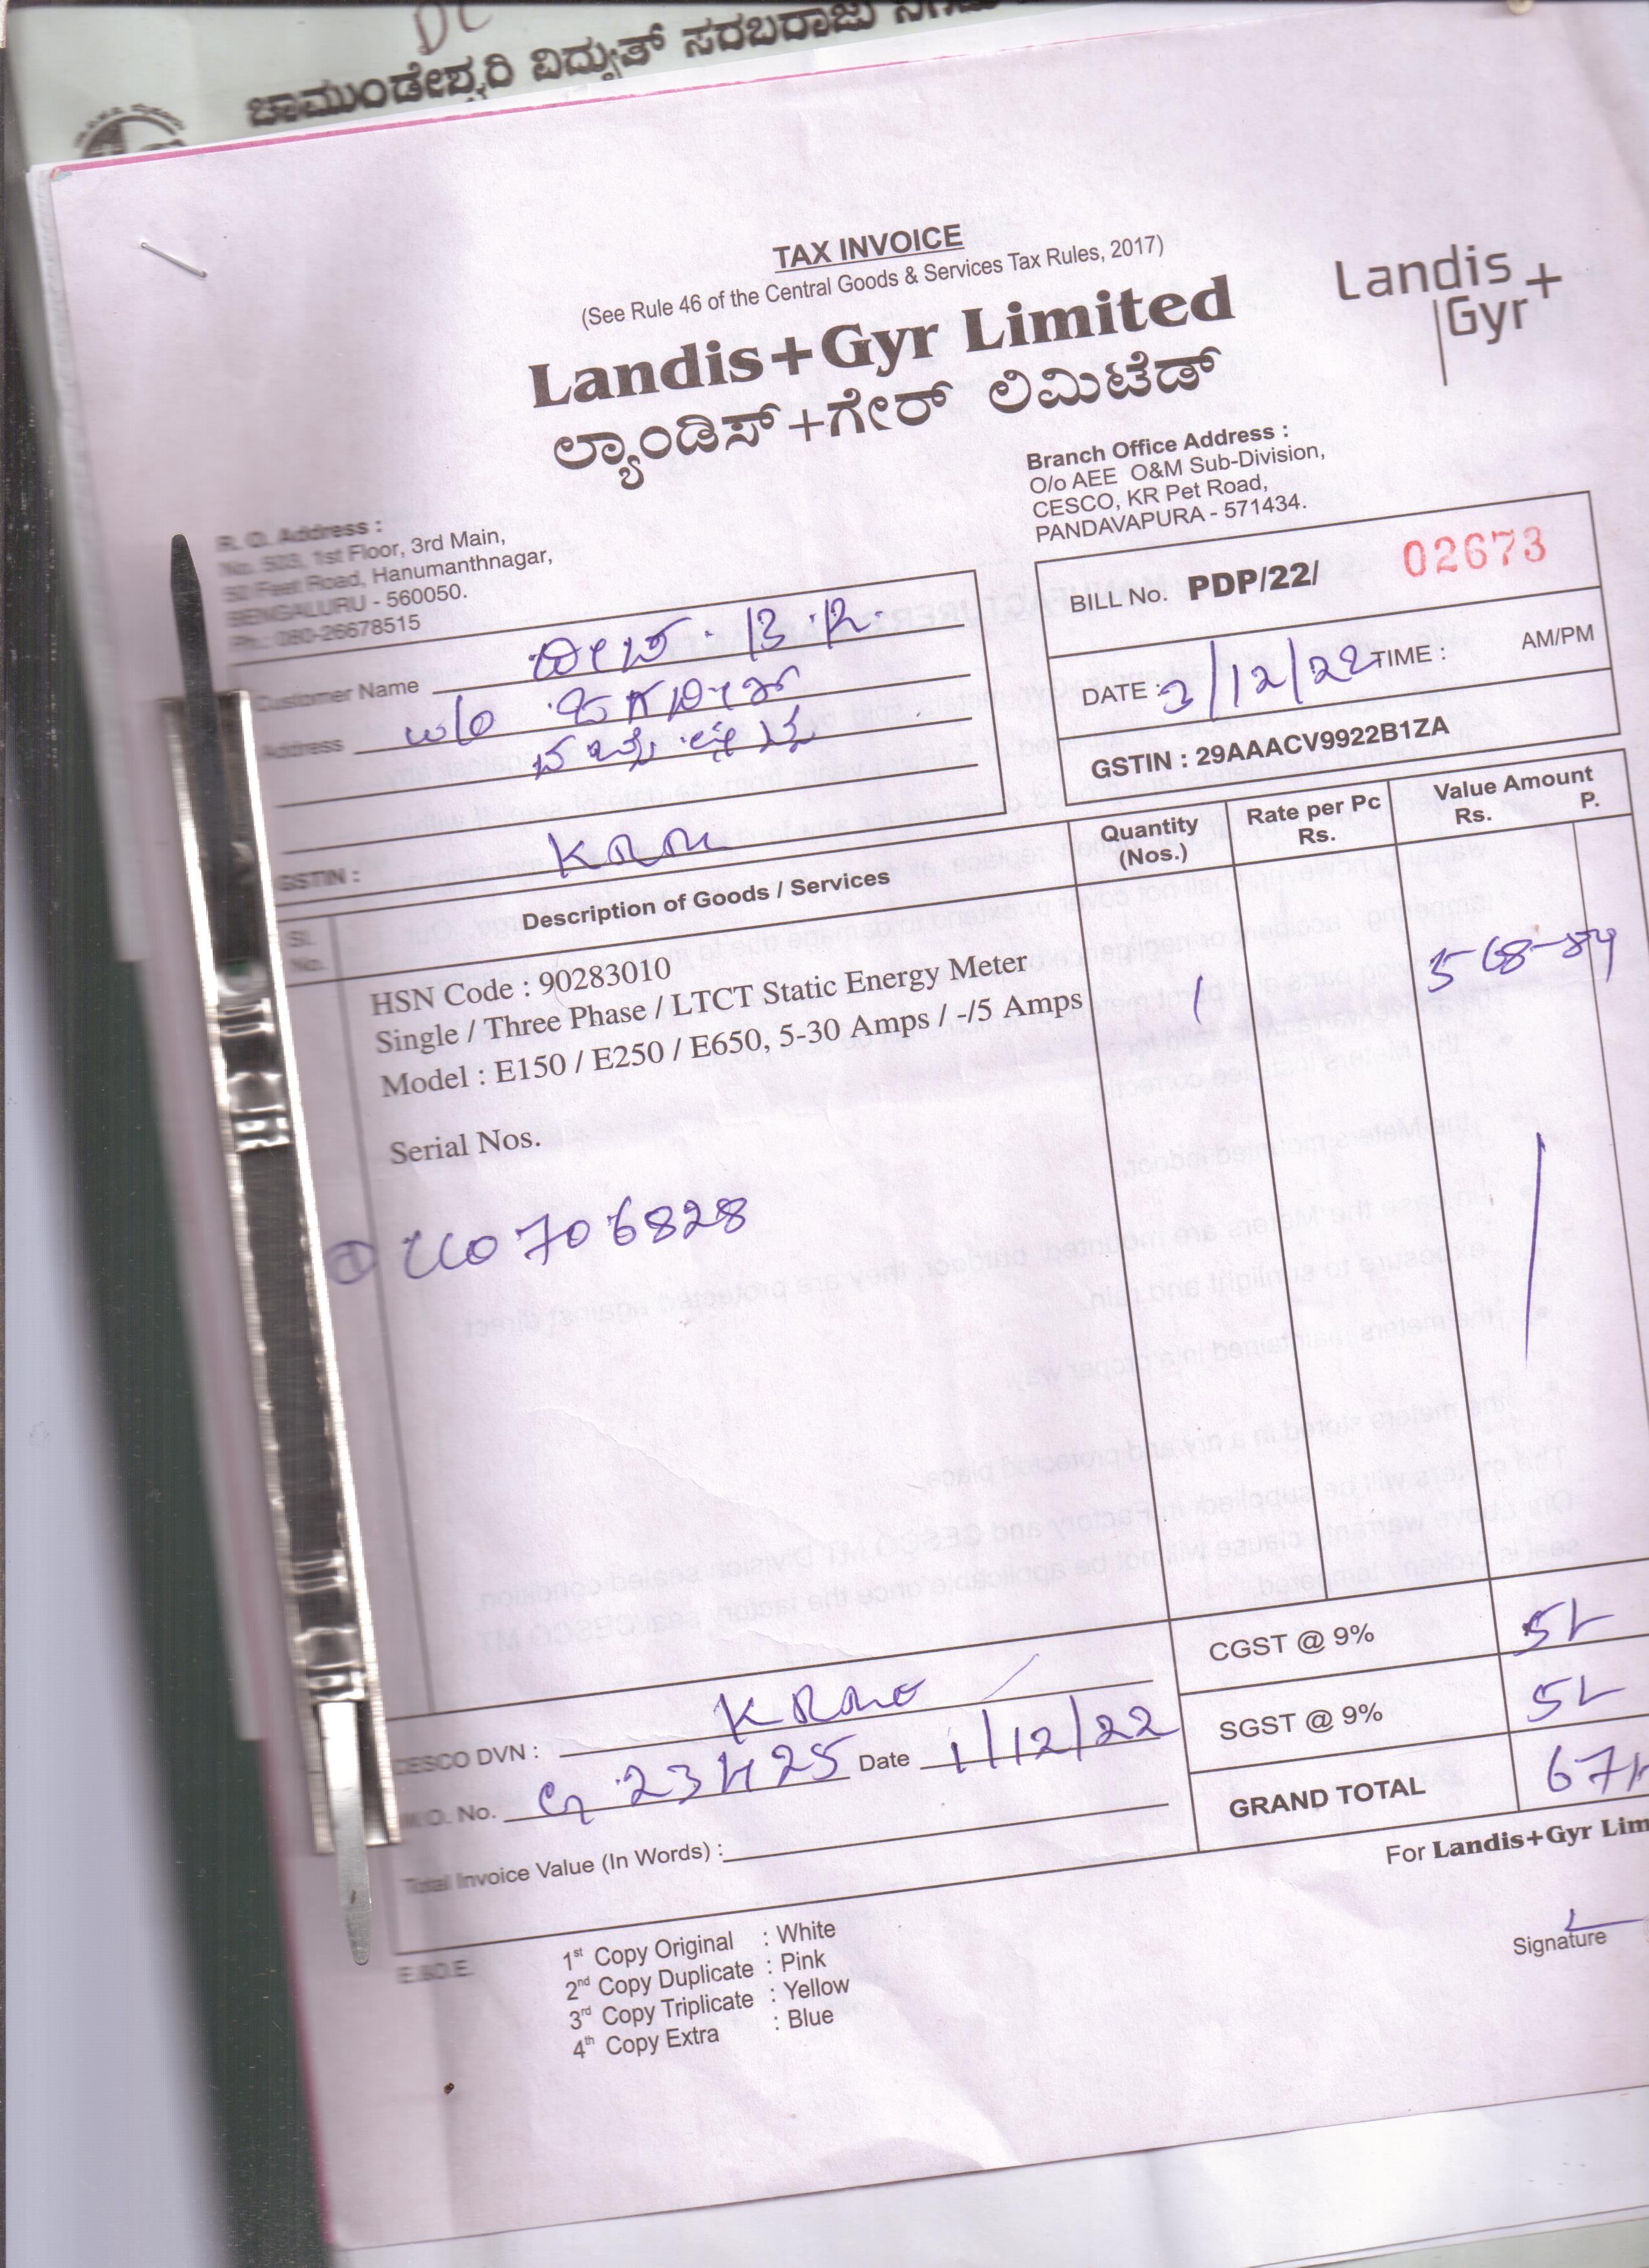 ಚಾಮುಂಡೇಶ್ವರಿ ವಿದ್ಯುತ್ ಸರಬರಾಜು
TAX INVOICE
(See Rule 46 of the Central Goods & Services Tax Rules, 2017)
Landis+Gyr Limited
ಲ್ಯಾಂಡಿಸ್+ಗೇರ್ ಲಿಮಿಟೆಡ್
Landis
Gyr+
Branch Office Address :
O/o AEE O&M Sub-Division,
CESCO, KR Pet Road,
PANDAVAPURA - 571434.
R. O. Address :
No. 503, 1st Floor, 3rd Main,
50 Feet Road, Hanumanthnagar,
BENGALURU - 560050.
Ph.: 080-26678515
BILL No. PDP/22/ 02673
DATE : 3/12/22 TIME : AM/PM
GSTIN : 29AAACV9922B1ZA
Customer Name B.R.
Address w/o
GSTIN :
Sl. No. Description of Goods / Services Quantity (Nos.) Rate per Pc Rs. Value Amount Rs. P.
HSN Code : 90283010
Single / Three Phase / LTCT Static Energy Meter 1 568-84
Model : E150 / E250 / E650, 5-30 Amps / -/5 Amps
Serial Nos.
706828
CGST @ 9% 51
SGST @ 9% 51
GRAND TOTAL 671
CESCO DVN :
M.O. No. Date 1/12/22
Total Invoice Value (In Words) :
For Landis+Gyr Lim
E.&O.E.
1st Copy Original : White
2nd Copy Duplicate : Pink
3rd Copy Triplicate : Yellow
4th Copy Extra : Blue
Signature